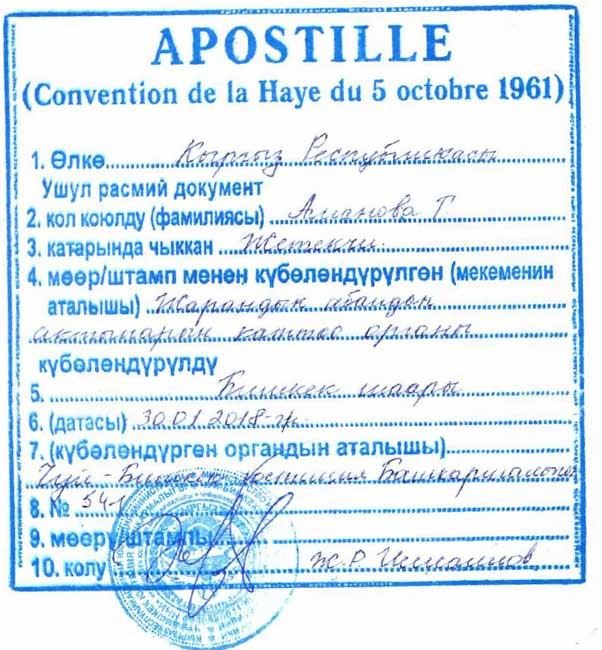 APOSTILLE
(Convention de la Haye du 5 octobre 1961)
1. Өлкө Кыргыз Республикасы
Ушул расмий документ
2. кол коюлду (фамилиясы) Аманова Г
3. катарында чыккан Жетекчи
4. мөөр/штамп менен күбөлөндүрүлгөн (мекеменин
аталышы) Жарандык абалдын
актыларын каттоо органы
күбөлөндүрүлдү
5. Бишкек шаары
6. (датасы) 30.01.2018-ж
7. (күбөлөндүргөн органдын аталышы)
Чүй-Бишкек юстиция Башкармалыгы
8. № 54-1
9. мөөрү/штампы
10. колу Ж.Р. Исмаилов